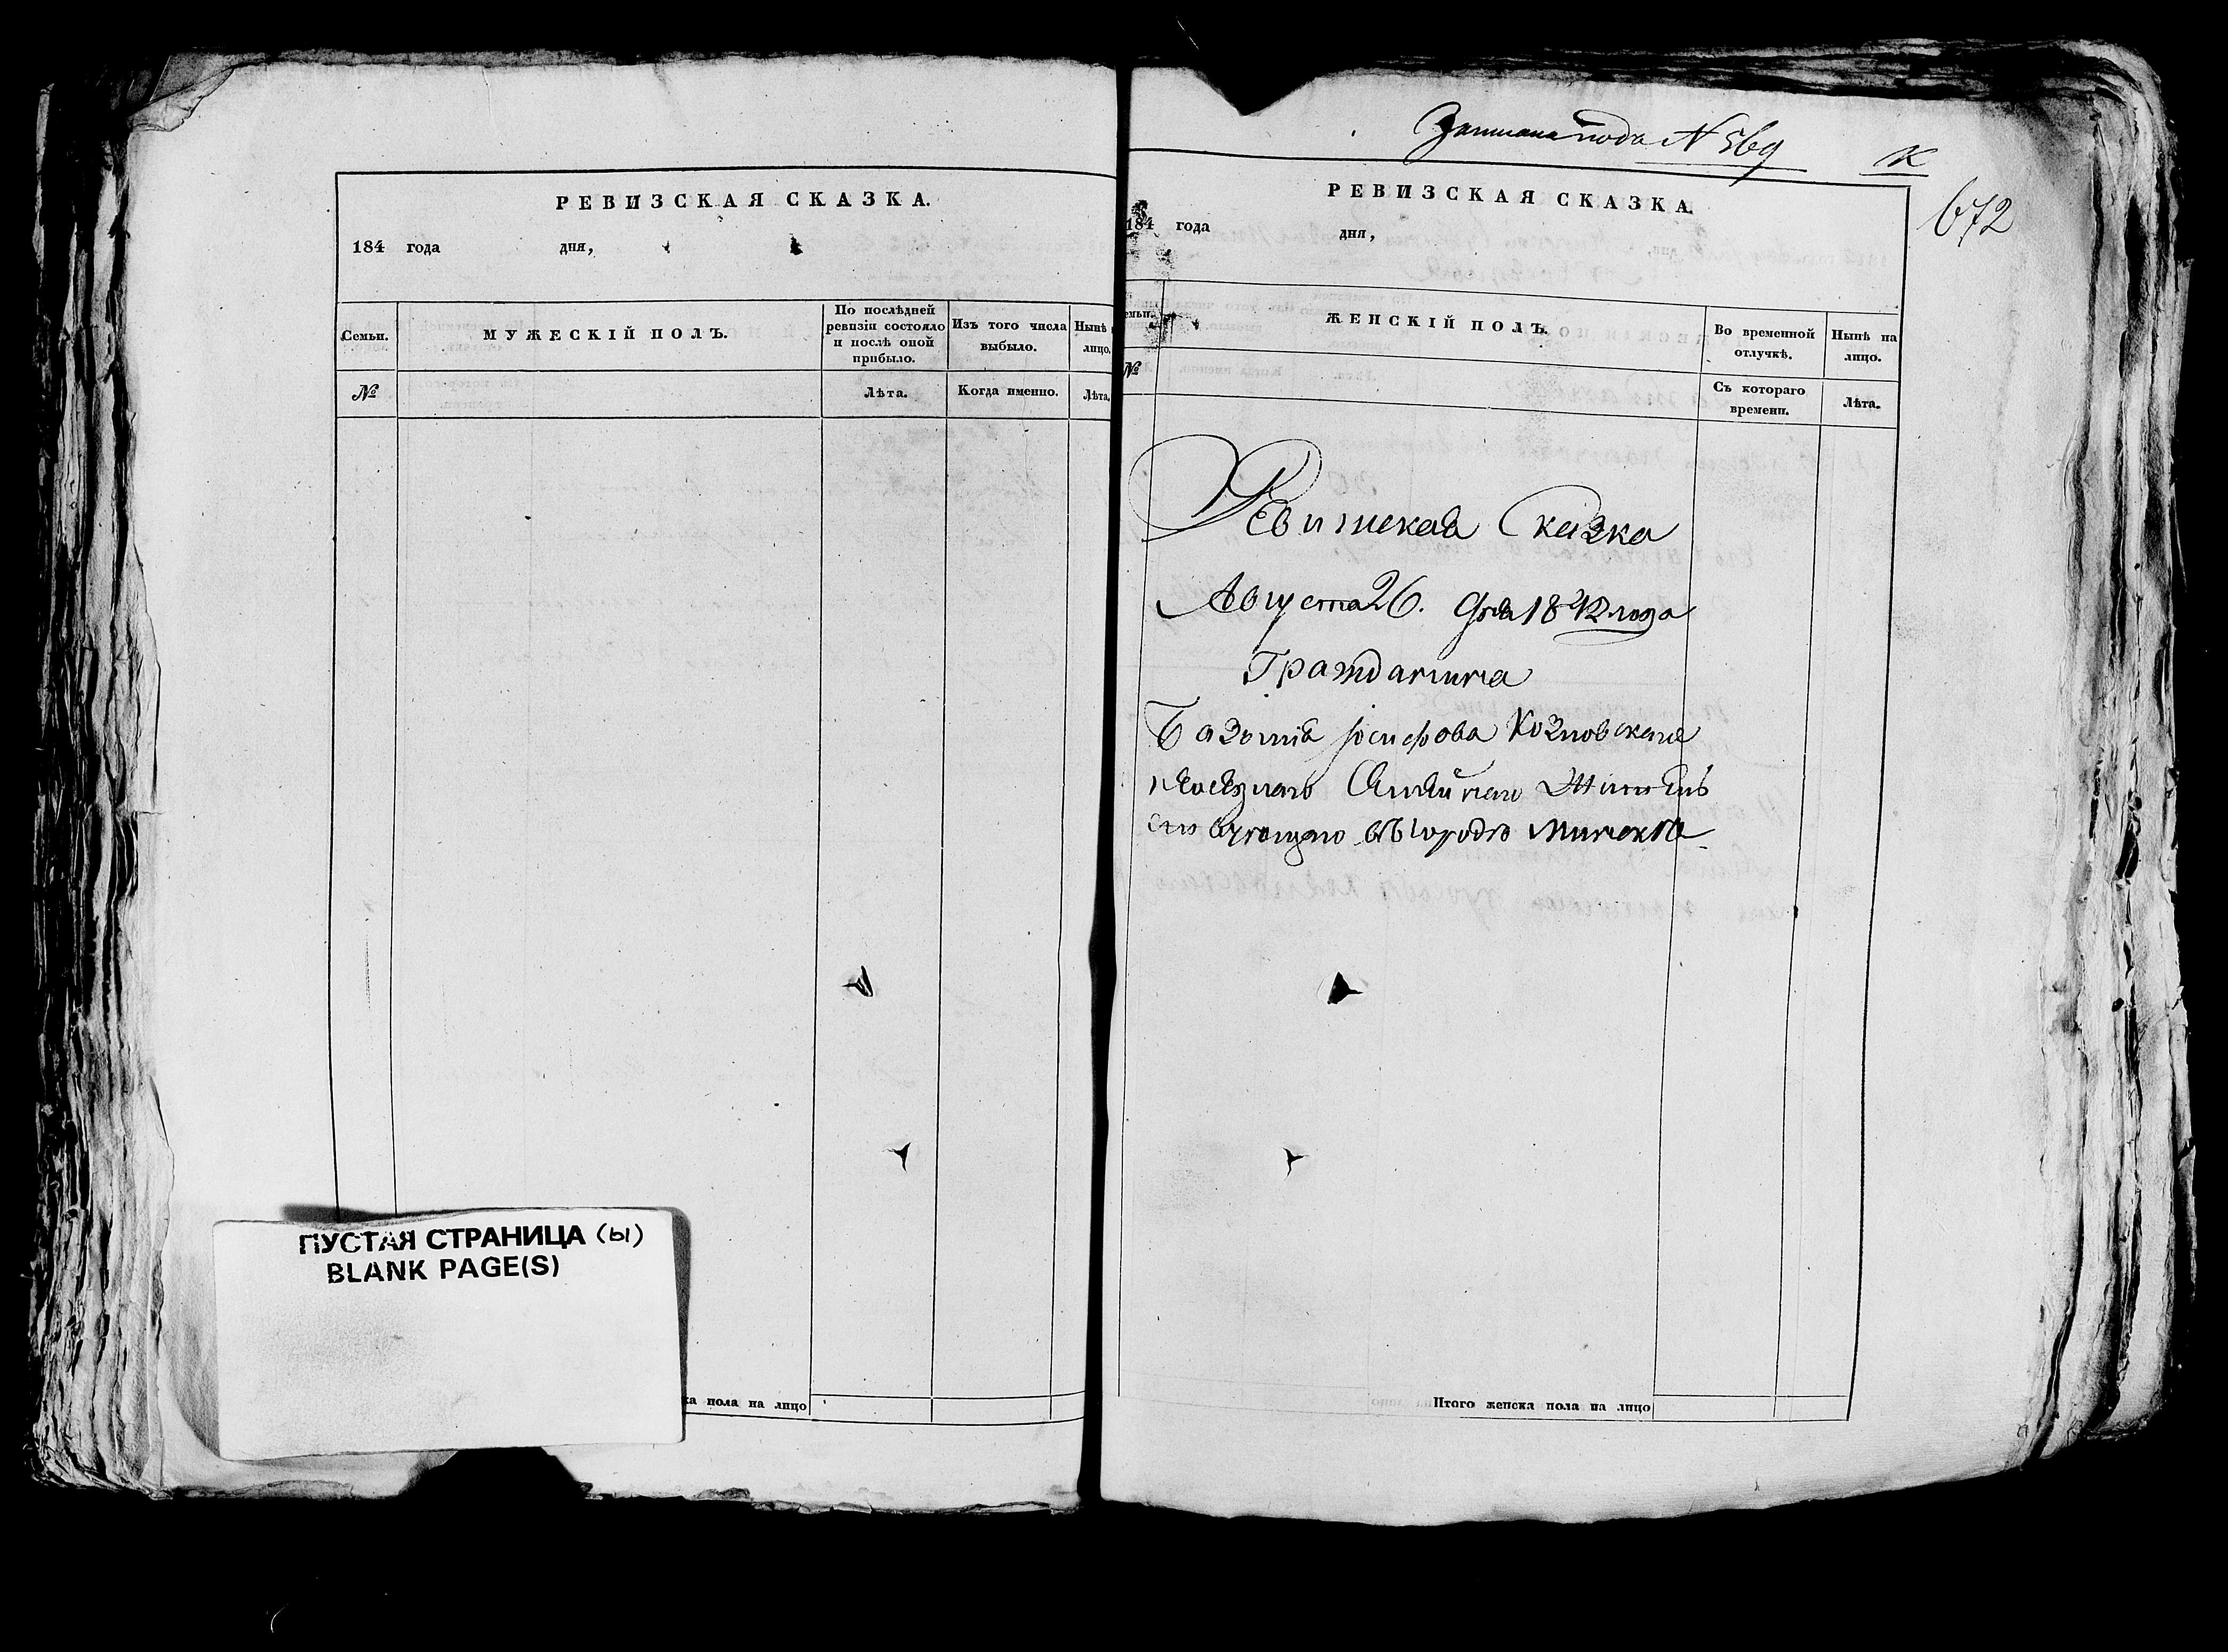 РЕВИЗСКАЯ СКАЗКА.
184 года дня,
Семьи.
МУЖЕСКІЙ ПОЛЪ.
По послѣдней
ревизіи состояло
и послѣ оной
прибыло.
Изъ того числа
выбыло.
Нынѣ
лицо.
№
Лѣта.
Когда именно.
Лѣта.
ПУСТАЯ СТРАНИЦА (ы)
BLANK PAGE(S)
ка пола на лицо
Записана подъ N 569
К
672
РЕВИЗСКАЯ СКАЗКА.
184 года дня,
емьи.
ЖЕНСКІЙ ПОЛЪ.
Во временной
отлучкѣ.
Нынѣ на
лицо.
№
Съ котораго
времени.
Лѣта.
Ревизская Сказка
Августа 26. дня 1842 года
Гражданина
Іосифова Козловскаго
въ городѣ Минскѣ
Итого женска пола на лицо